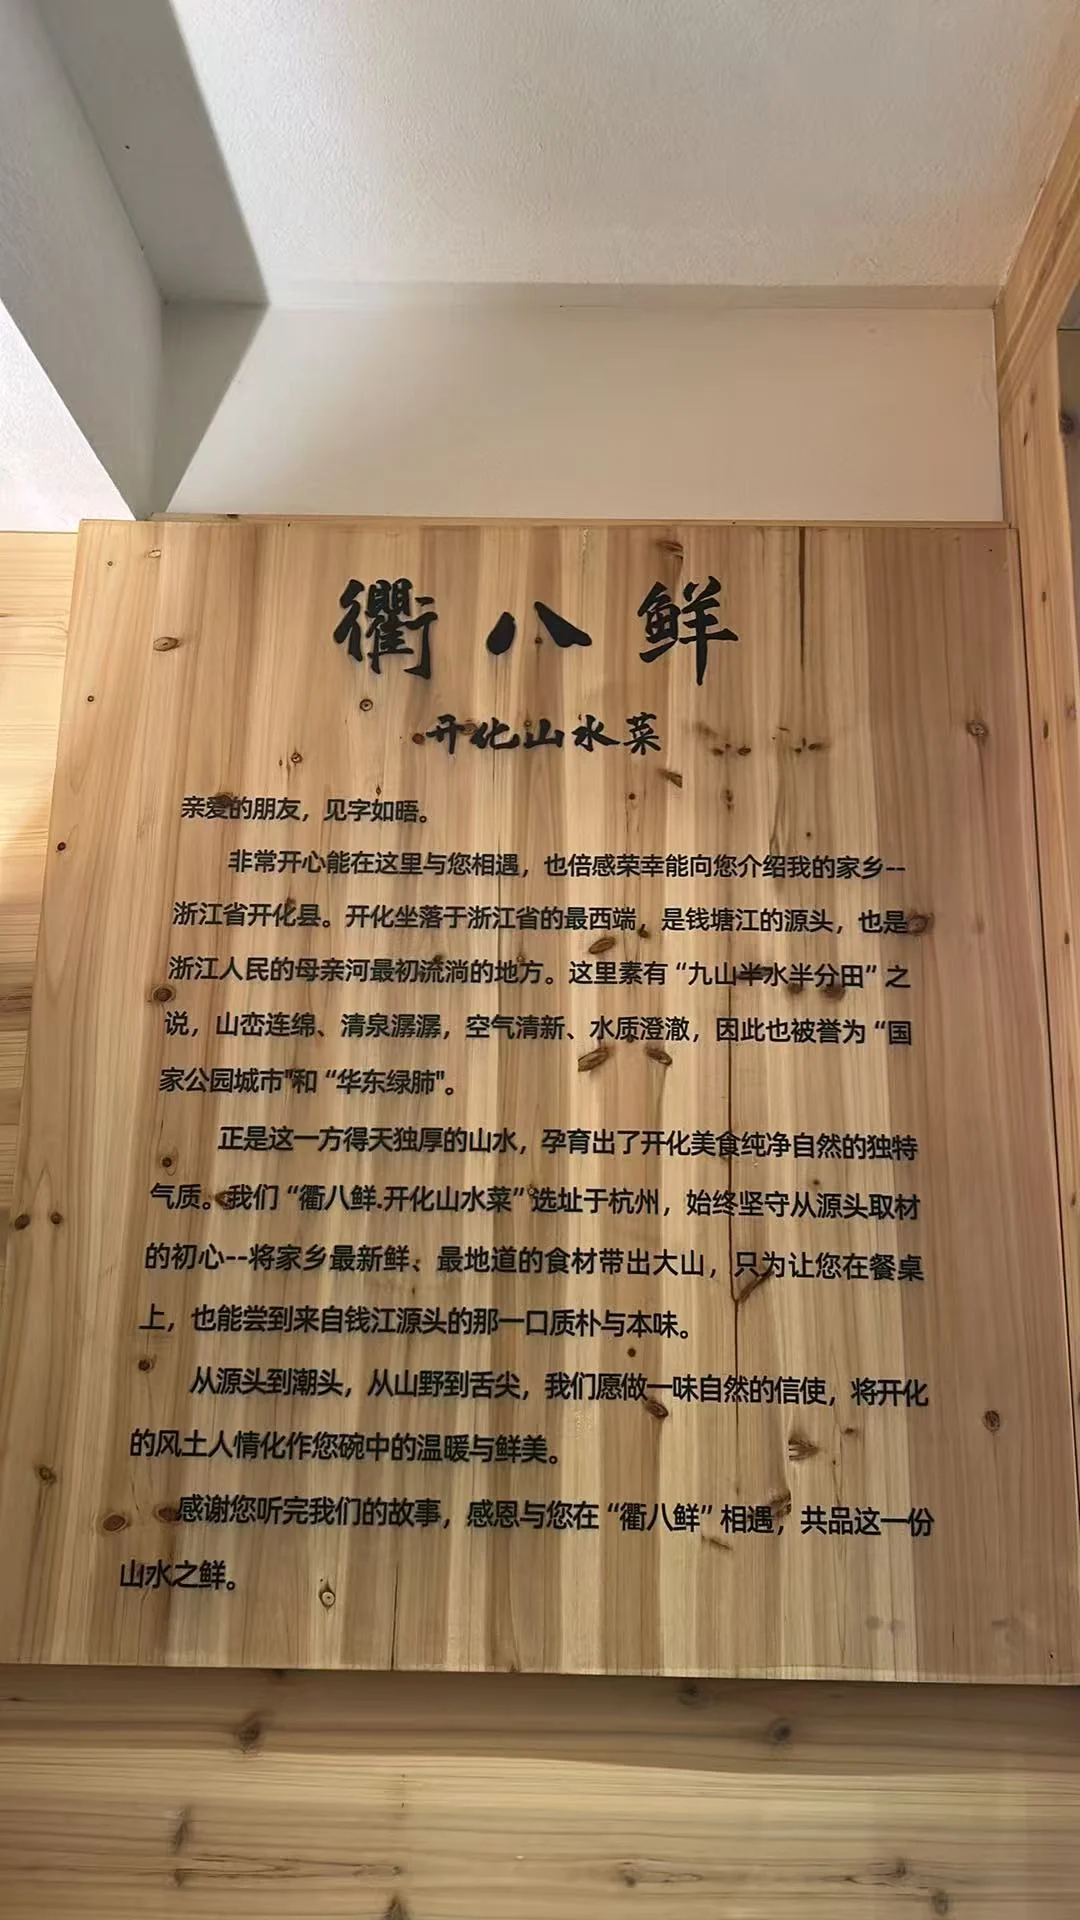 衢八鲜
开化山水菜
亲爱的朋友，见字如晤。
非常开心能在这里与您相遇，也倍感荣幸能向您介绍我的家乡--
浙江省开化县。开化坐落于浙江省的最西端，是钱塘江的源头，也是
浙江人民的母亲河最初流淌的地方。这里素有“九山半水半分田”之
说，山峦连绵、清泉潺潺，空气清新、水质澄澈，因此也被誉为“国
家公园城市"和“华东绿肺"。
正是这一方得天独厚的山水，孕育出了开化美食纯净自然的独特
气质。我们“衢八鲜.开化山水菜”选址于杭州，始终坚守从源头取材
的初心--将家乡最新鲜、最地道的食材带出大山，只为让您在餐桌
上，也能尝到来自钱江源头的那一口质朴与本味。
从源头到潮头，从山野到舌尖，我们愿做一味自然的信使，将开化
的风土人情化作您碗中的温暖与鲜美。
感谢您听完我们的故事，感恩与您在“衢八鲜”相遇，共品这一份
山水之鲜。